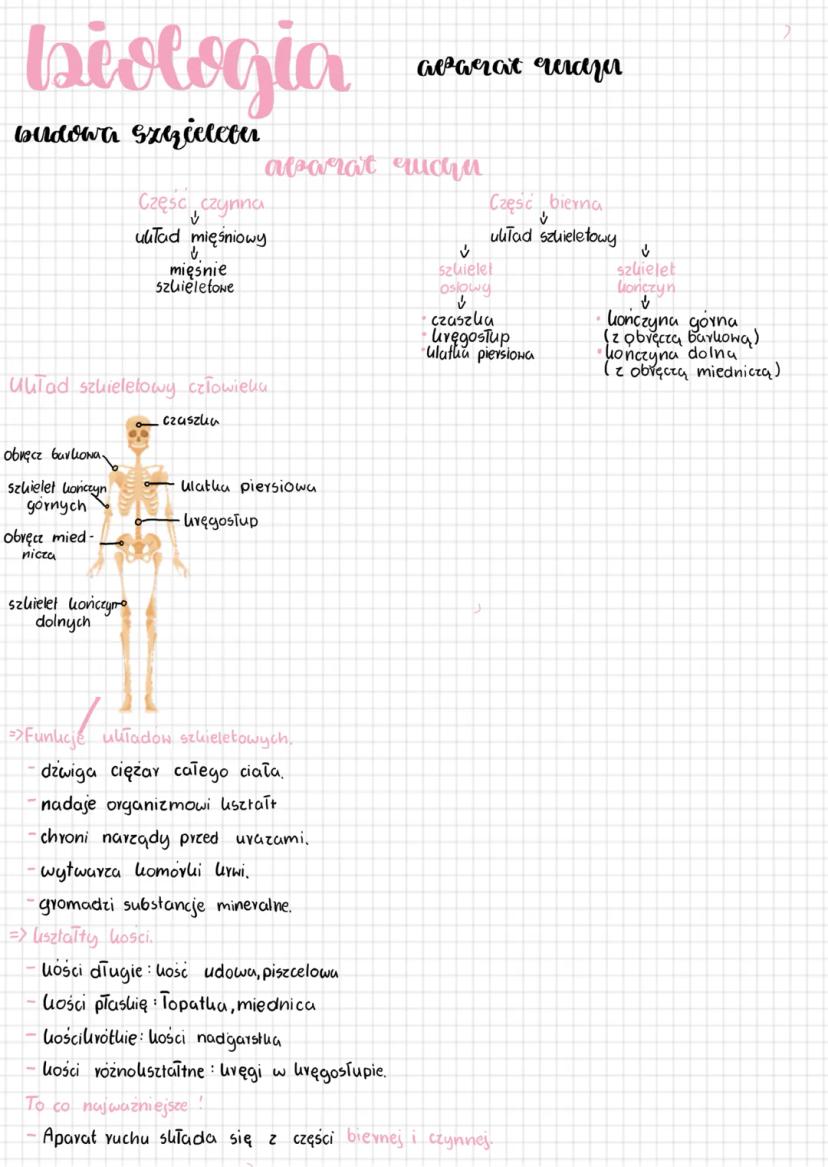 biologia
aparat ruchu
budowa szkieletu
aparat ruchu
Część czynna
układ mięśniowy
mięśnie
szkieletowe
Część bierna
układ szkieletowy
szkielet
osiowy
• czaszka
• kręgosłup
• klatka piersiowa
szkielet
kończyn
• kończyna górna
(z obręczą barkową)
• kończyna dolna
(z obręczą miedniczą)
Układ szkieletowy człowieka
czaszka
obręcz barkowa
szkielet kończyn
górnych
klatka piersiowa
kręgosłup
obręcz mied-
nicza
szkielet kończyn
dolnych
=>Funkcje układów szkieletowych.
- dźwiga ciężar całego ciała.
- nadaje organizmowi kształt
- chroni narządy przed urazami.
- wytwarza komórki krwi.
- gromadzi substancje mineralne.
=> kształty kości.
- kości długie: kość udowa, piszczelowa
- kości płaskię: łopatka, miednica
- kościkrótkie: kości nadgarstka
- kości różnokształtne: kręgi w kręgosłupie.
To co najważniejsze!
- Aparat ruchu składa się z części biernej i czynnej.